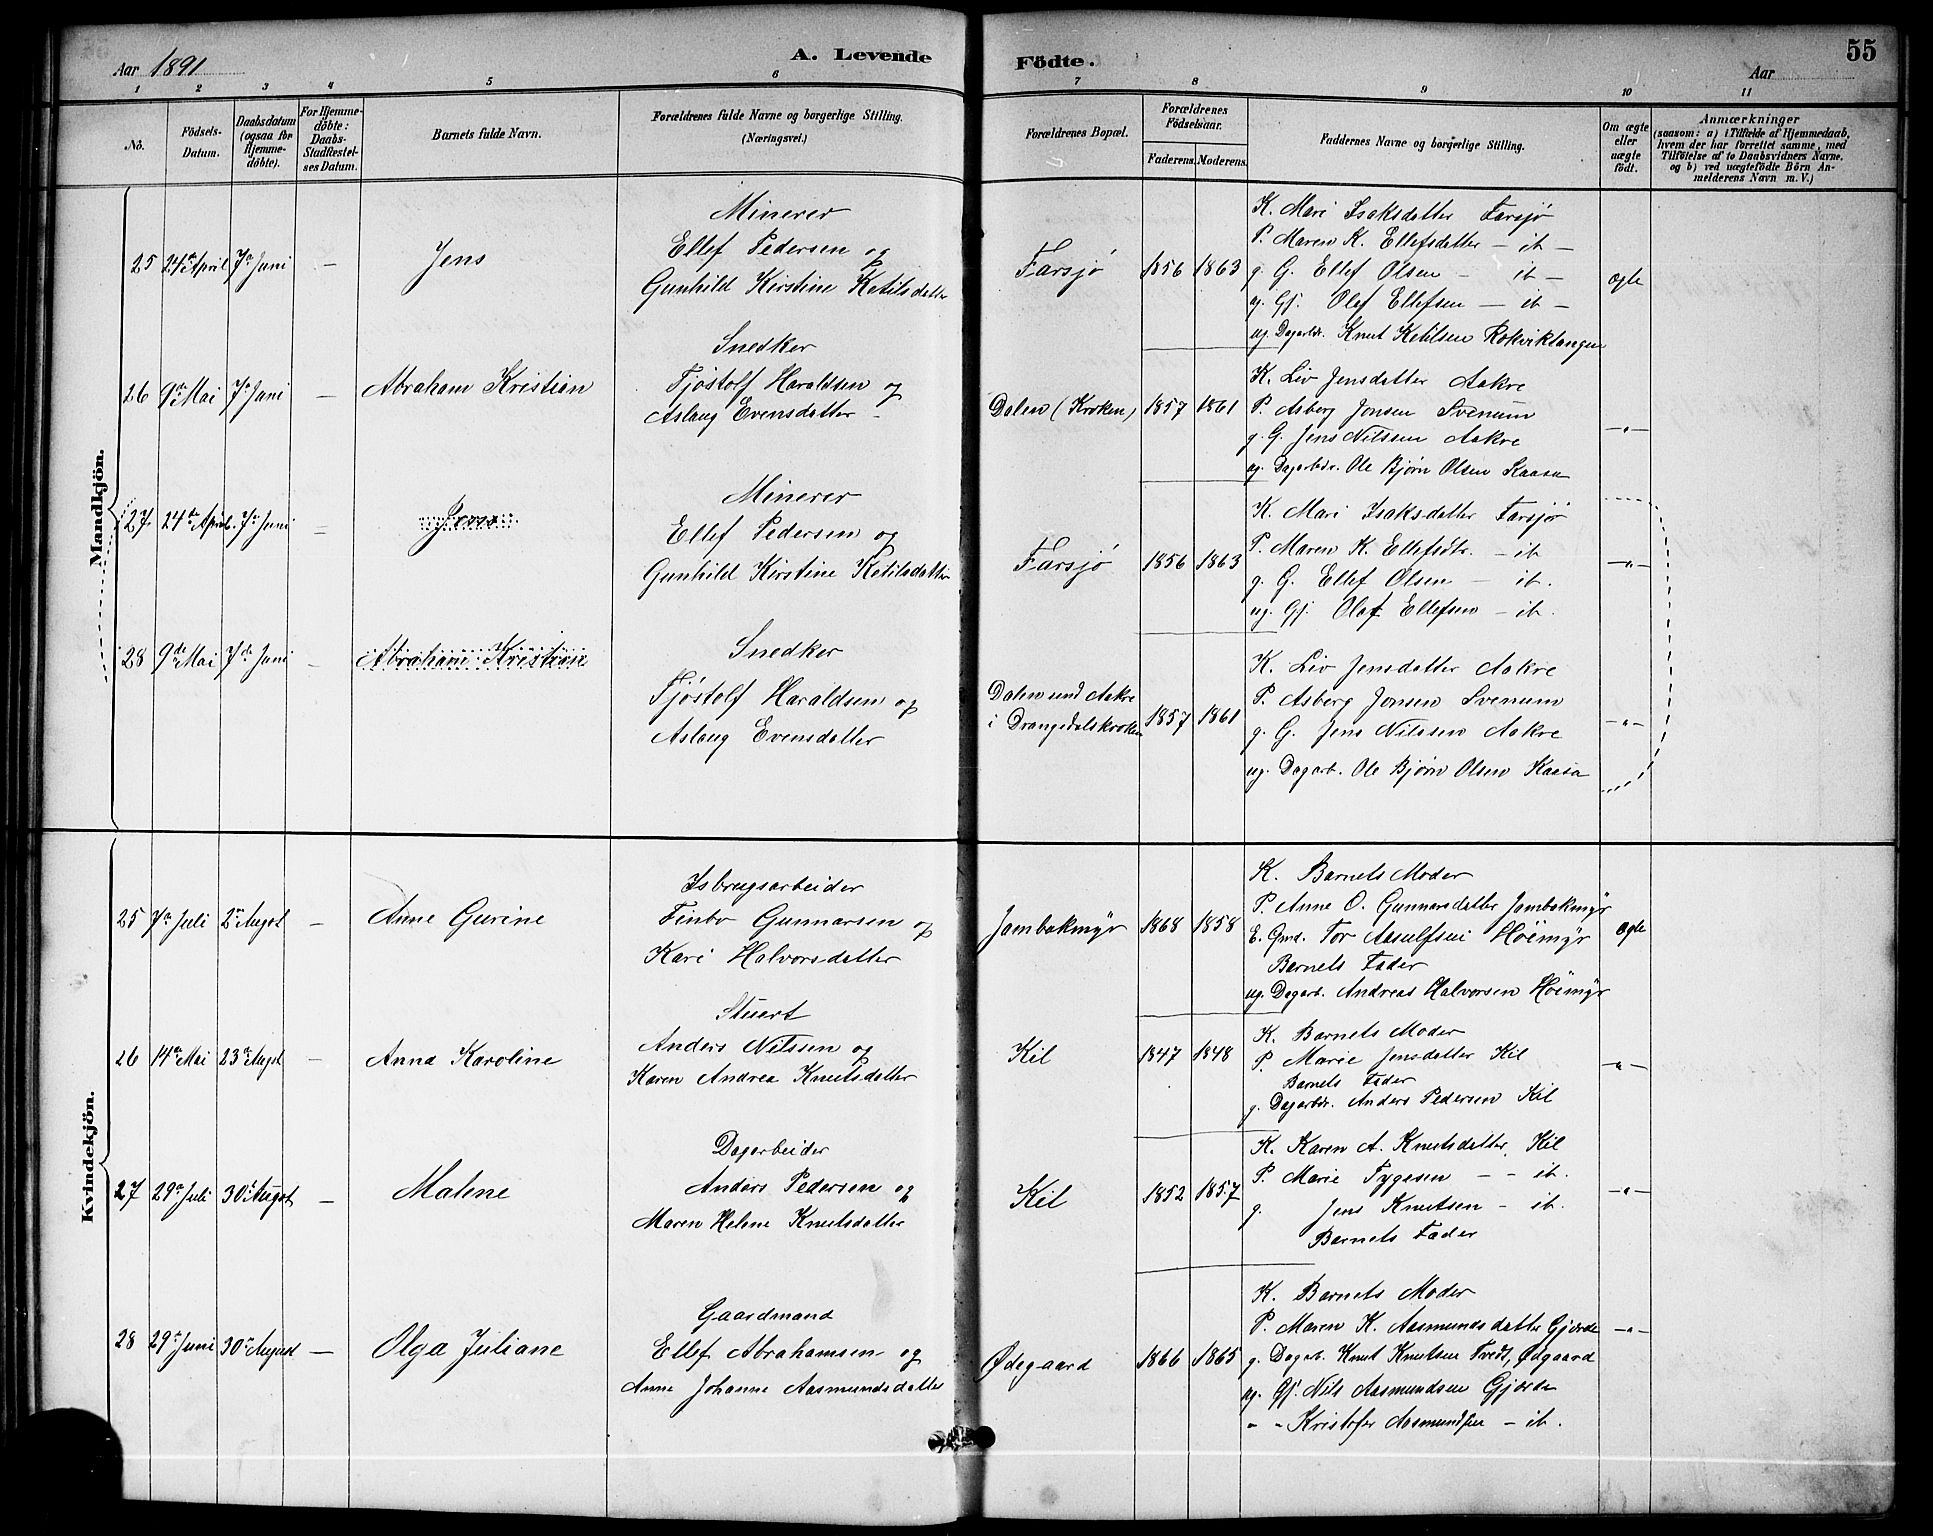 Aar 1891
A. Levende
Födte.
Aar
55
1 2 3 4 5 6 7 8 9 10 11
No.
Födsels-
Datum.
Daabsdatum
(ogsaa for
Hjemme-
döbte).
For Hjemme-
döbte:
Daabs-
Stadfæstel-
ses Datum.
Barnets fulde Navn.
Forældrenes fulde Navne og borgerlige Stilling.
(Næringsvei.)
Forældrenes Bopæl.
Forældrenes
Födselsaar.
Faderens. Moderens.
Faddernes Navne og borgerlige Stilling.
Om ægte
eller
uægte
födt.
Anmærkninger
(saasom: a) i Tilfælde af Hjemmedaab,
hvem der har forrettet samme, med
Tilföielse af to Daabsvidners Navne.
og b) ved uægtefödte Börn An-
melderens Navn m. V.)
Mandkjön.
25 24de April 7de Juni — Jens
Minerer
Ellef Pedersen og
Gunhild Kirstine Ketilsdatter
Farsjø 1856 1863
K. Mari Isaksdatter Farsjø
P. Maren K. Ellefsdatter — it —
g. G. Ellef Olsen — it —
ug. Gj. Olaf Ellefsen — it —
ug. Dagarbdr. Knut Ketilsen Rokviktangen
ægte
26 9de Mai 7de Juni — Abraham Kristian
Snedker
Tjøstolf Haraldsen og
Aslaug Evensdatter
Dalen (Kroken) 1857 1861
K. Liv Jensdatter Aakre
P. Asberg Jonsen Svenum
g. G. Jens Nilsen Aakre
ug. Dagarbdr. Ole Bjørn Olsen Kaasa
—"—
27 24de April. 7de Juni — Jens
Minerer
Ellef Pedersen og
Gunhild Kirstine Ketilsdatter
Farsjø 1856 1863
K. Mari Isaksdatter Farsjør
P. Maren K. Ellefsdtr. — it
g. G. Ellef Olsen — it.
ug. Gj. Olaf Ellefsen — it.
—"—
28 9de Mai 7de Juni — Abraham Kristian
Snedker
Tjøstolf Haraldsen og
Aslaug Evensdatter
Dalen und Aakre
i Drangedalskroken 1857 1861
K. Liv Jensdatter Aakre
P. Asberg Jonsen Svenum
g. G. Jens Nilssen Aakre
ug. Dagarb. Ole Bjørn Olsen Kaasa
—"—
Kvindekjön.
25 7de Juli 2de Augst — Anne Gurine
Isbrugsarbeider
Finbo Gunnarsen og
Kari Halvorsdatter
Jambakmyr 1868 1858
K. Barnets Moder
P. Anne O. Gunnarsdatter Jambakmyr
E. Gmd. Tor Aasulfsen Høimyr
Barnets Fader
ug. Dagarb. Andreas Halvorsen Høimyr
ægte
26 14de Mai 23de Augst — Anna Karoline
Stuert
Anders Nilssen og
Karen Andrea Knutsdatter
Kil 1847 1848
K. Barnets Moder
P. Marie Jensdatter Kil
Barnets Fader
g. Dagarbdr. Anders Pedersen Kil
—"—
27 29de Juli 30de August — Malene
Dagarbeider
Anders Pedersen og
Maren Helene Knutsdatter
Kil 1852 1857
K. Karen A. Knutsdatter, Kil
P. Marie Tygesen — — it.
g. Jens Knutsen — it.
Barnets Fader
—"—
28 29de Juni 30de August — Olga Juliane
Gaardmand
Ellef Abrahamsen og
Anne Johanne Aasmundsdatter
Ødegaard 1866 1865
K. Barnets Moder
P. Maren K. Aasmundsdatter Gjerde
g. Dagarb. Knut Knutsen Tvedt, Ødgaard
ug. Gj. Nils Aasmundsen Gjerde
" " Kristofer Aasmundsen — it.
—"—